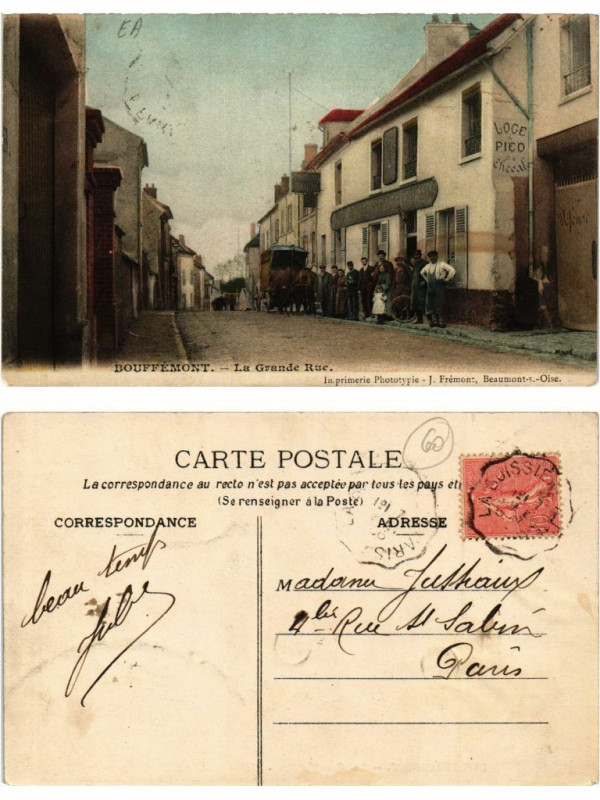 EA
LOGE
PICO
Défense
BOUFFÉMONT. - La Grande Rue.
Imprimerie Phototypie - J. Frémont, Beaumont-s.-Oise.
60
CARTE POSTALE
La correspondance au recto n'est pas acceptée par tous les pays et
(Se renseigner à la Poste)
CORRESPONDANCE
ADRESSE
beau temps
Madame
4bis Rue St Sabin
Paris